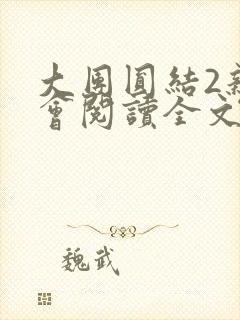 大團圓結2新
會閱讀全文
魏武